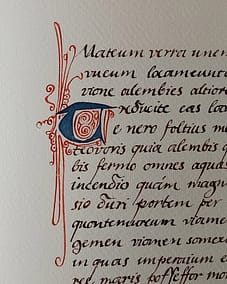 Mateum verra unem
vueum locameunta
vione alembies altiore
Trediicite eas la
e nero foltius m
teovoris quia alembis q
bis fermo omnes aquas
incendio quám magn
sio dūri portem per
quontenateum viame
gemen vianen somex
in quas imperaium e
res maris poffeffor mo